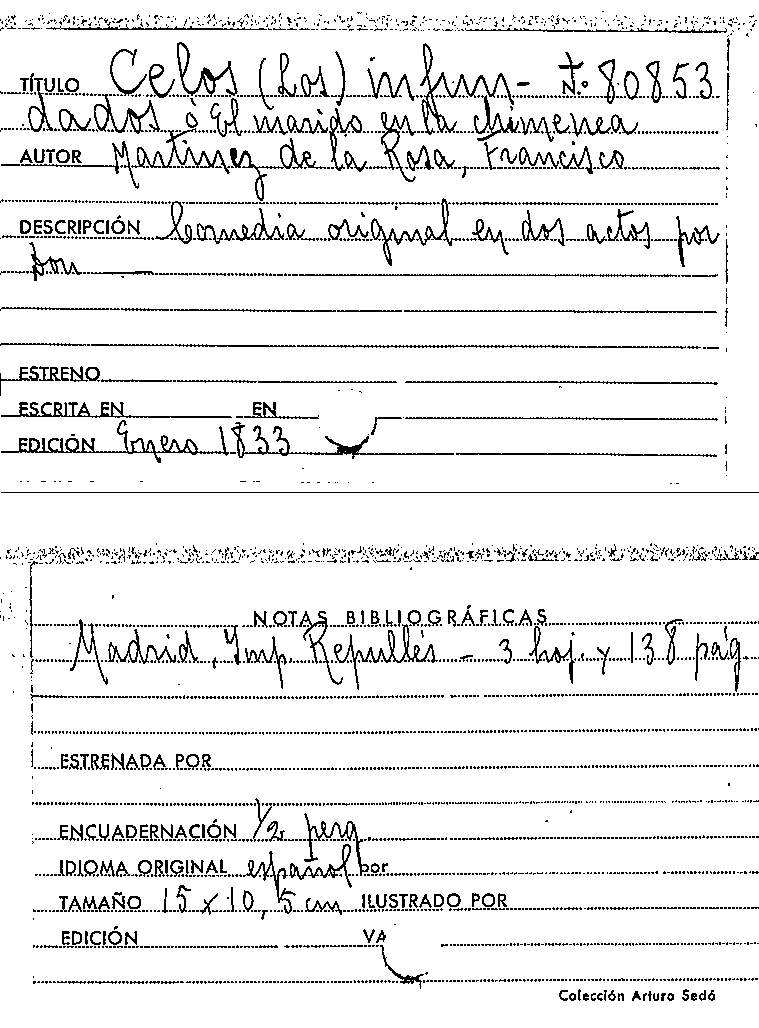 TÍTULO Celos (Los) infun- N.º 80853
dados ó El marido en la chimenea
AUTOR Martínez de la Rosa, Francisco
DESCRIPCIÓN Comedia original en dos actos por
Don —
ESTRENO
ESCRITA EN EN
EDICIÓN Enero 1833
NOTAS BIBLIOGRÁFICAS
Madrid, Imp. Repullés - 3 hoj. y 138 pág.
ESTRENADA POR
ENCUADERNACIÓN 1/2 perg.
IDIOMA ORIGINAL español por
TAMAÑO 15 x 10,5 cm ILUSTRADO POR
EDICIÓN VA
Colección Arturo Sedó